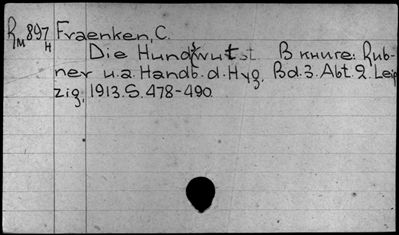 Rм897н Fraenken, C.
Die Hundswut. В книге: Rub-
ner u.a. Handb. d. Hyg. Bd. 3. Abt. 2. Leip
zig, 1913. S. 478-490.